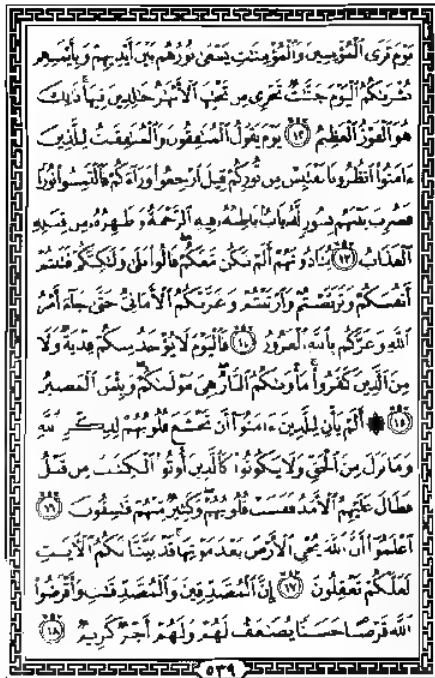 يَوْمَ تَرَى ٱلْمُؤْمِنِينَ وَٱلْمُؤْمِنَٰتِ يَسْعَىٰ نُورُهُم بَيْنَ أَيْدِيهِمْ وَبِأَيْمَٰنِهِم
بُشْرَىٰكُمُ ٱلْيَوْمَ جَنَّٰتٌ تَجْرِى مِن تَحْتِهَا ٱلْأَنْهَٰرُ خَٰلِدِينَ فِيهَا ۚ ذَٰلِكَ
هُوَ ٱلْفَوْزُ ٱلْعَظِيمُ ۝١٢ يَوْمَ يَقُولُ ٱلْمُنَٰفِقُونَ وَٱلْمُنَٰفِقَٰتُ لِلَّذِينَ
ءَامَنُوا۟ ٱنظُرُونَا نَقْتَبِسْ مِن نُّورِكُمْ قِيلَ ٱرْجِعُوا۟ وَرَآءَكُمْ فَٱلْتَمِسُوا۟ نُورًا
فَضُرِبَ بَيْنَهُم بِسُورٍ لَّهُۥ بَابٌۢ بَاطِنُهُۥ فِيهِ ٱلرَّحْمَةُ وَظَٰهِرُهُۥ مِن قِبَلِهِ
ٱلْعَذَابُ ۝١٣ يُنَادُونَهُمْ أَلَمْ نَكُن مَّعَكُمْ ۖ قَالُوا۟ بَلَىٰ وَلَٰكِنَّكُمْ فَتَنتُمْ
أَنفُسَكُمْ وَتَرَبَّصْتُمْ وَٱرْتَبْتُمْ وَغَرَّتْكُمُ ٱلْأَمَانِىُّ حَتَّىٰ جَآءَ أَمْرُ
ٱللَّهِ وَغَرَّكُم بِٱللَّهِ ٱلْغَرُورُ ۝١٤ فَٱلْيَوْمَ لَا يُؤْخَذُ مِنكُمْ فِدْيَةٌ وَلَا
مِنَ ٱلَّذِينَ كَفَرُوا۟ ۚ مَأْوَىٰكُمُ ٱلنَّارُ ۖ هِىَ مَوْلَىٰكُمْ ۖ وَبِئْسَ ٱلْمَصِيرُ
۝١٥ ۞ أَلَمْ يَأْنِ لِلَّذِينَ ءَامَنُوٓا۟ أَن تَخْشَعَ قُلُوبُهُمْ لِذِكْرِ ٱللَّهِ
وَمَا نَزَلَ مِنَ ٱلْحَقِّ وَلَا يَكُونُوا۟ كَٱلَّذِينَ أُوتُوا۟ ٱلْكِتَٰبَ مِن قَبْلُ
فَطَالَ عَلَيْهِمُ ٱلْأَمَدُ فَقَسَتْ قُلُوبُهُمْ ۖ وَكَثِيرٌ مِّنْهُمْ فَٰسِقُونَ ۝١٦
ٱعْلَمُوٓا۟ أَنَّ ٱللَّهَ يُحْىِ ٱلْأَرْضَ بَعْدَ مَوْتِهَا ۚ قَدْ بَيَّنَّا لَكُمُ ٱلْءَايَٰتِ
لَعَلَّكُمْ تَعْقِلُونَ ۝١٧ إِنَّ ٱلْمُصَّدِّقِينَ وَٱلْمُصَّدِّقَٰتِ وَأَقْرَضُوا۟
ٱللَّهَ قَرْضًا حَسَنًا يُضَٰعَفُ لَهُمْ وَلَهُمْ أَجْرٌ كَرِيمٌ ۝١٨
٥٣٩